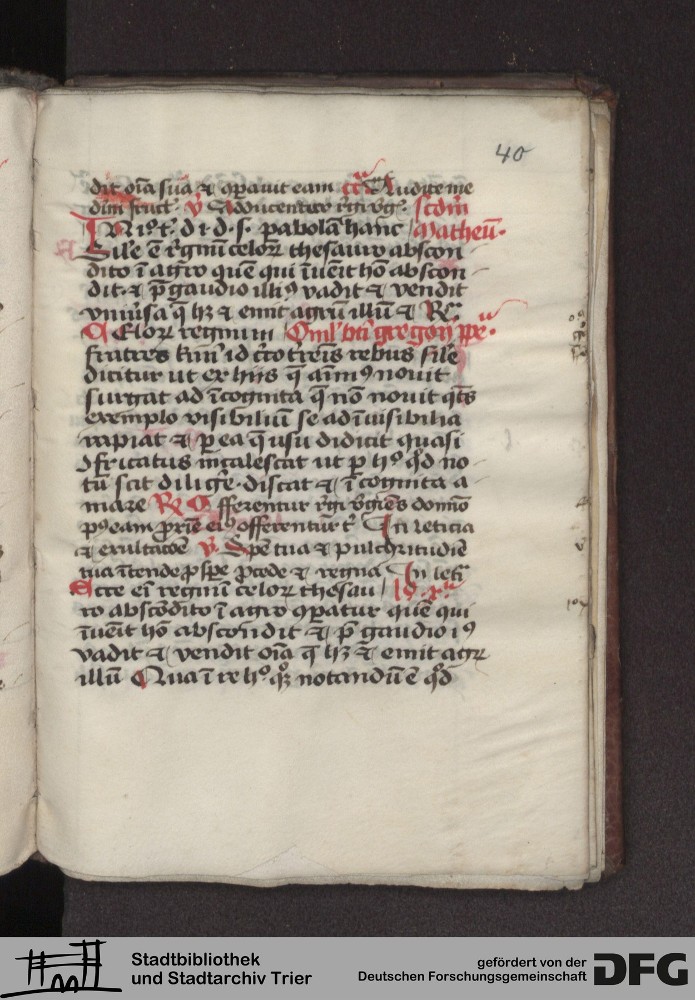 40
dit oīa sua ⁊ ꝯparauit eam Audite me
diuī fructꝰ. v̄ Adducentur r̄gi v̄ḡ. scdm̄
IN ill. t. d. i. d. s. pabolā hanc Matheū.
Sil'e ē r̄gnū celoꝝ thesauro abscon
dito ī agro quē qui īuēit hō abscon
dit ⁊ p̄ gaudio illiꝰ vadit ⁊ vendit
vniūsa q̄ hꝫ ⁊ emit agrū illū ⁊ Re.
CElorꝝ regnum Oml' bti gregorij pp̄e.
fratres kmī id c̄ro t̄renis rebus sil'e
dicitur ut ex hijs q̄ aīmꝰ nouit
surgat ad īcognita q̄ nō nouit q̄ts
exemplo visibiliū se ad īuisibilia
rapiat ⁊ ꝑ ea q̄ usu didicit quasi
ꝯfricatus incalescat ut ꝑ hoͨ qd̄ no
tū scit dilig̃e discat ⁊ īcognita a
mare R̄ Offerentur r̄gi v̄gīes domīo
pꝰ eam prox̄īe eiꝰ offerentur t̄ In leticia
⁊ exultacōe v̄. Spē tua ⁊ pulchritudīe
tua ītende ꝓspe ꝓcede ⁊ regna In leti
Ecce eī regnū celoꝝ thesau
ro abscōdito ī agro ꝯparatur quē qui
īuēit hō abscondit ⁊ p̄ gaudio iꝰ
vadit ⁊ vendit oīa q̄ hꝫ ⁊ emit agrꝝ
illū Qua ī re hoͨ qͦꝫ notandū ē qd̄
Stadtbibliothek
und Stadtarchiv Trier
gefördert von der
Deutschen Forschungsgemeinschaft
DFG